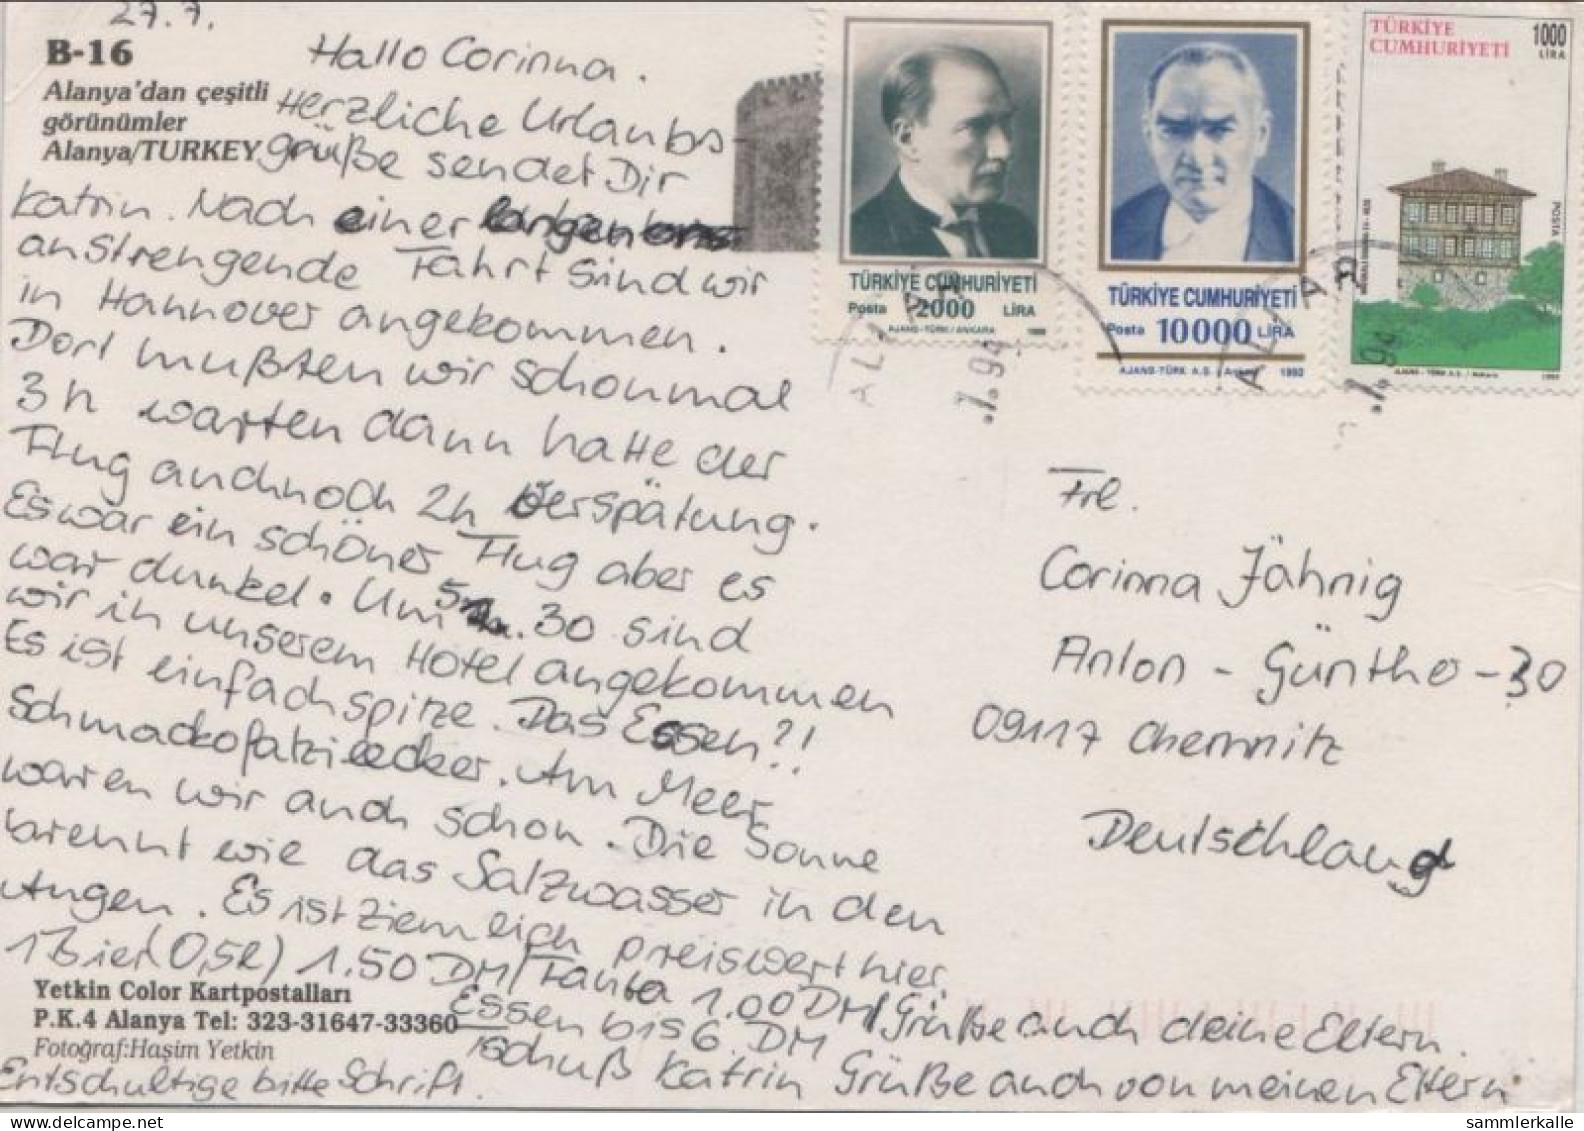 27.7.
B-16
Alanya'dan çeşitli
görünümler
Alanya/TURKEY
Hallo Corinna.
Herzliche Urlaubs-
grüße sendet Dir
Katrin. Nach einer
anstrengende Fahrt sind wir
in Hannover angekommen.
Dort mußten wir schonmal
3h warten dann hatte der
Flug auch noch 2h Verspätung.
Es war ein schöner Flug aber es
war dunkel. Um 5.30 sind
wir in unserem Hotel angekommen
Es ist einfach spitze. Das Essen?!
Schmackofatzilecker. Am Meer
waren wir auch schon. Die Sonne
brennt wie das Salzwasser in den
Augen. Es ist ziemlich preiswert hier.
1 Bier (0,5l) 1.50 DM/Fanta 1.00 DM/
Essen bis 6. DM
Schuß Katrin
Grüße auch deine Eltern.
Grüße auch von meinen Eltern
Entschultige bitte Schrift.
Yetkin Color Kartpostalları
P.K.4 Alanya Tel: 323-31647-33360
Fotoğraf:Haşim Yetkin
TÜRKİYE CUMHURİYETİ
Posta 2000 LİRA
AJANS-TÜRK / ANKARA
TÜRKİYE CUMHURİYETİ
Posta 10000 LİRA
AJANS-TÜRK A.Ş. Ankara 1992
TÜRKİYE
CUMHURİYETİ
1000
LİRA
POSTA
AJANS - TÜRK A.Ş. / Ankara
.7.94
.7.94
Frl.
Corinna Jähnig
Anton-Günther-30
09117 Chemnitz
Deutschland
delcampe.net
sammlerkalle